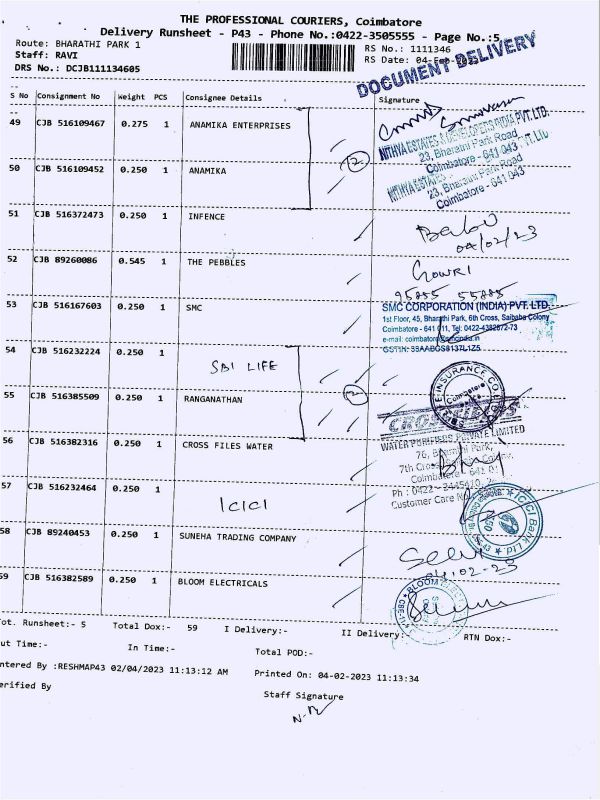 THE PROFESSIONAL COURIERS, Coimbatore
Delivery Runsheet - P43 - Phone No.:0422-3505555 - Page No.:5
Route: BHARATHI PARK 1
RS No.: 1111346
Staff: RAVI
RS Date: 04-Feb-2023
DRS No.: DCJB111134605
DOCUMENT DELIVERY
S No Consignment No Weight PCS Consignee Details Signature
49 CJB 516109467 0.275 1 ANAMIKA ENTERPRISES
NITHYA ESTATES & DEVELOPERS INDIA PVT.LTD.
23, Bharathi Park Road
Coimbatore - 641 043
50 CJB 516109452 0.250 1 ANAMIKA
NITHYA ESTATES
23, Bharathi Park Road
Coimbatore - 641 043
51 CJB 516372473 0.250 1 INFENCE
Babu
04/02/23
52 CJB 89260086 0.545 1 THE PEBBLES
Gowri
95855 55885
53 CJB 516167603 0.250 1 SMC
SMC CORPORATION (INDIA) PVT. LTD.
1st Floor, 45, Bharathi Park, 6th Cross, Saibaba Colony
Coimbatore - 641 011, Tel: 0422-4382872-73
54 CJB 516232224 0.250 1
SBI LIFE
55 CJB 516385509 0.250 1 RANGANATHAN
Coimbatore
CROSSFILES
WATER PURIFIERS PRIVATE LIMITED
56 CJB 516382316 0.250 1 CROSS FILES WATER
76, Bharathi Park,
7th Cross
Coimbatore - 641 0
Customer Care No
57 CJB 516232464 0.250 1
ICICI
ICICI Bank Ltd
58 CJB 89240453 0.250 1 SUNEHA TRADING COMPANY
Selvi
04-02-23
59 CJB 516382589 0.250 1 BLOOM ELECTRICALS
BLOOM
Tot. Runsheet:- 5 Total Dox:- 59 I Delivery:- II Delivery:- RTN Dox:-
ut Time:- In Time:- Total POD:-
ntered By :RESHMAP43 02/04/2023 11:13:12 AM Printed On: 04-02-2023 11:13:34
erified By
Staff Signature